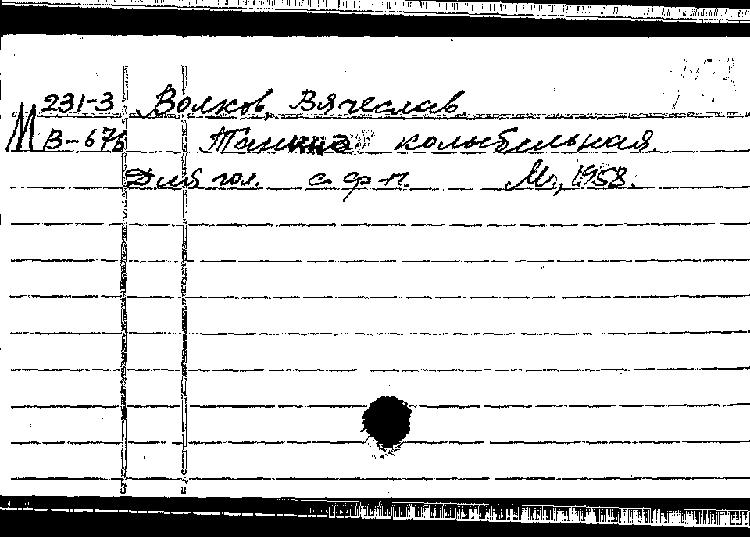 231-3 Волков, Вячеслав.
М В-676 Танина колыбельная.
Для гол. с ф-п. М., 1958.